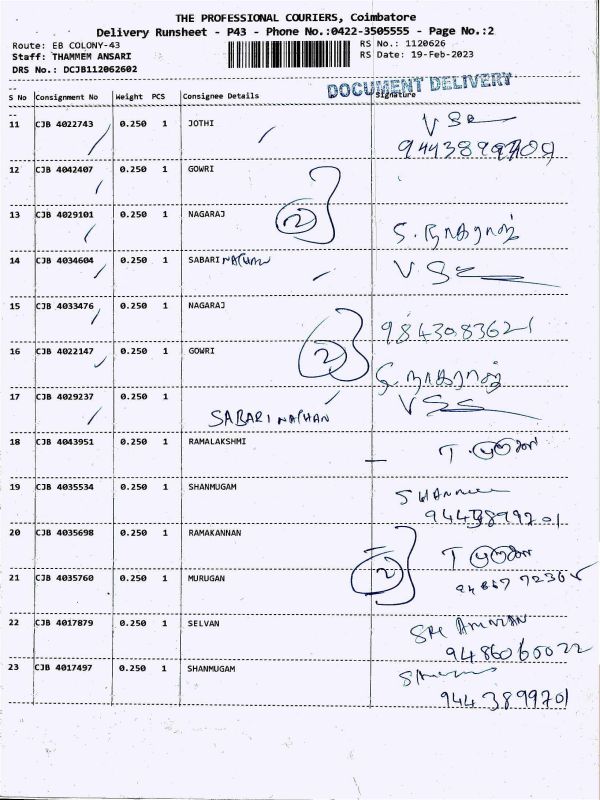 THE PROFESSIONAL COURIERS, Coimbatore
Delivery Runsheet - P43 - Phone No.:0422-3505555 - Page No.:2
Route: EB COLONY-43 RS No.: 1120626
Staff: THAMMEM ANSARI RS Date: 19-Feb-2023
DRS No.: DCJB112062602
DOCUMENT DELIVERY
S No Consignment No Weight PCS Consignee Details Signature
11 CJB 4022743 0.250 1 JOTHI
12 CJB 4042407 0.250 1 GOWRI
2
13 CJB 4029101 0.250 1 NAGARAJ S. நாகராஜ்
14 CJB 4034604 0.250 1 SABARI NATHAN
15 CJB 4033476 0.250 1 NAGARAJ
9843083621
2
16 CJB 4022147 0.250 1 GOWRI
நாகராஜ்
17 CJB 4029237 0.250 1
SABARI NATHAN
18 CJB 4043951 0.250 1 RAMALAKSHMI
19 CJB 4035534 0.250 1 SHANMUGAM
9443899701
20 CJB 4035698 0.250 1 RAMAKANNAN
2
21 CJB 4035760 0.250 1 MURUGAN
22 CJB 4017879 0.250 1 SELVAN
9486060022
23 CJB 4017497 0.250 1 SHANMUGAM
9443899701